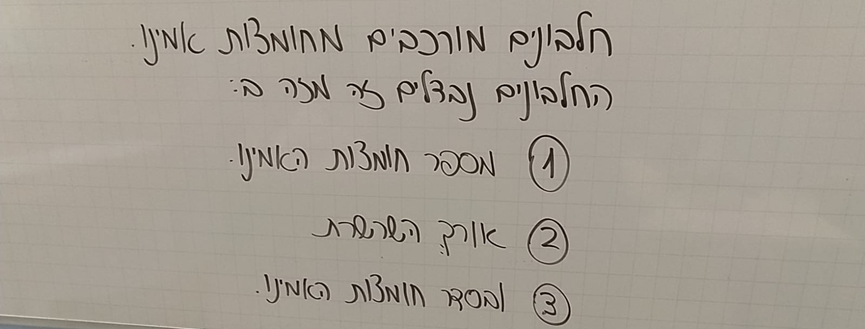 חלבונים מורכבים מחומצות אמינו.
החלבונים נבדלים זה מזה ב:
1 מספר חומצות האמינו.
2 אורך השרשרת
3 ובסדר חומצות האמינו.